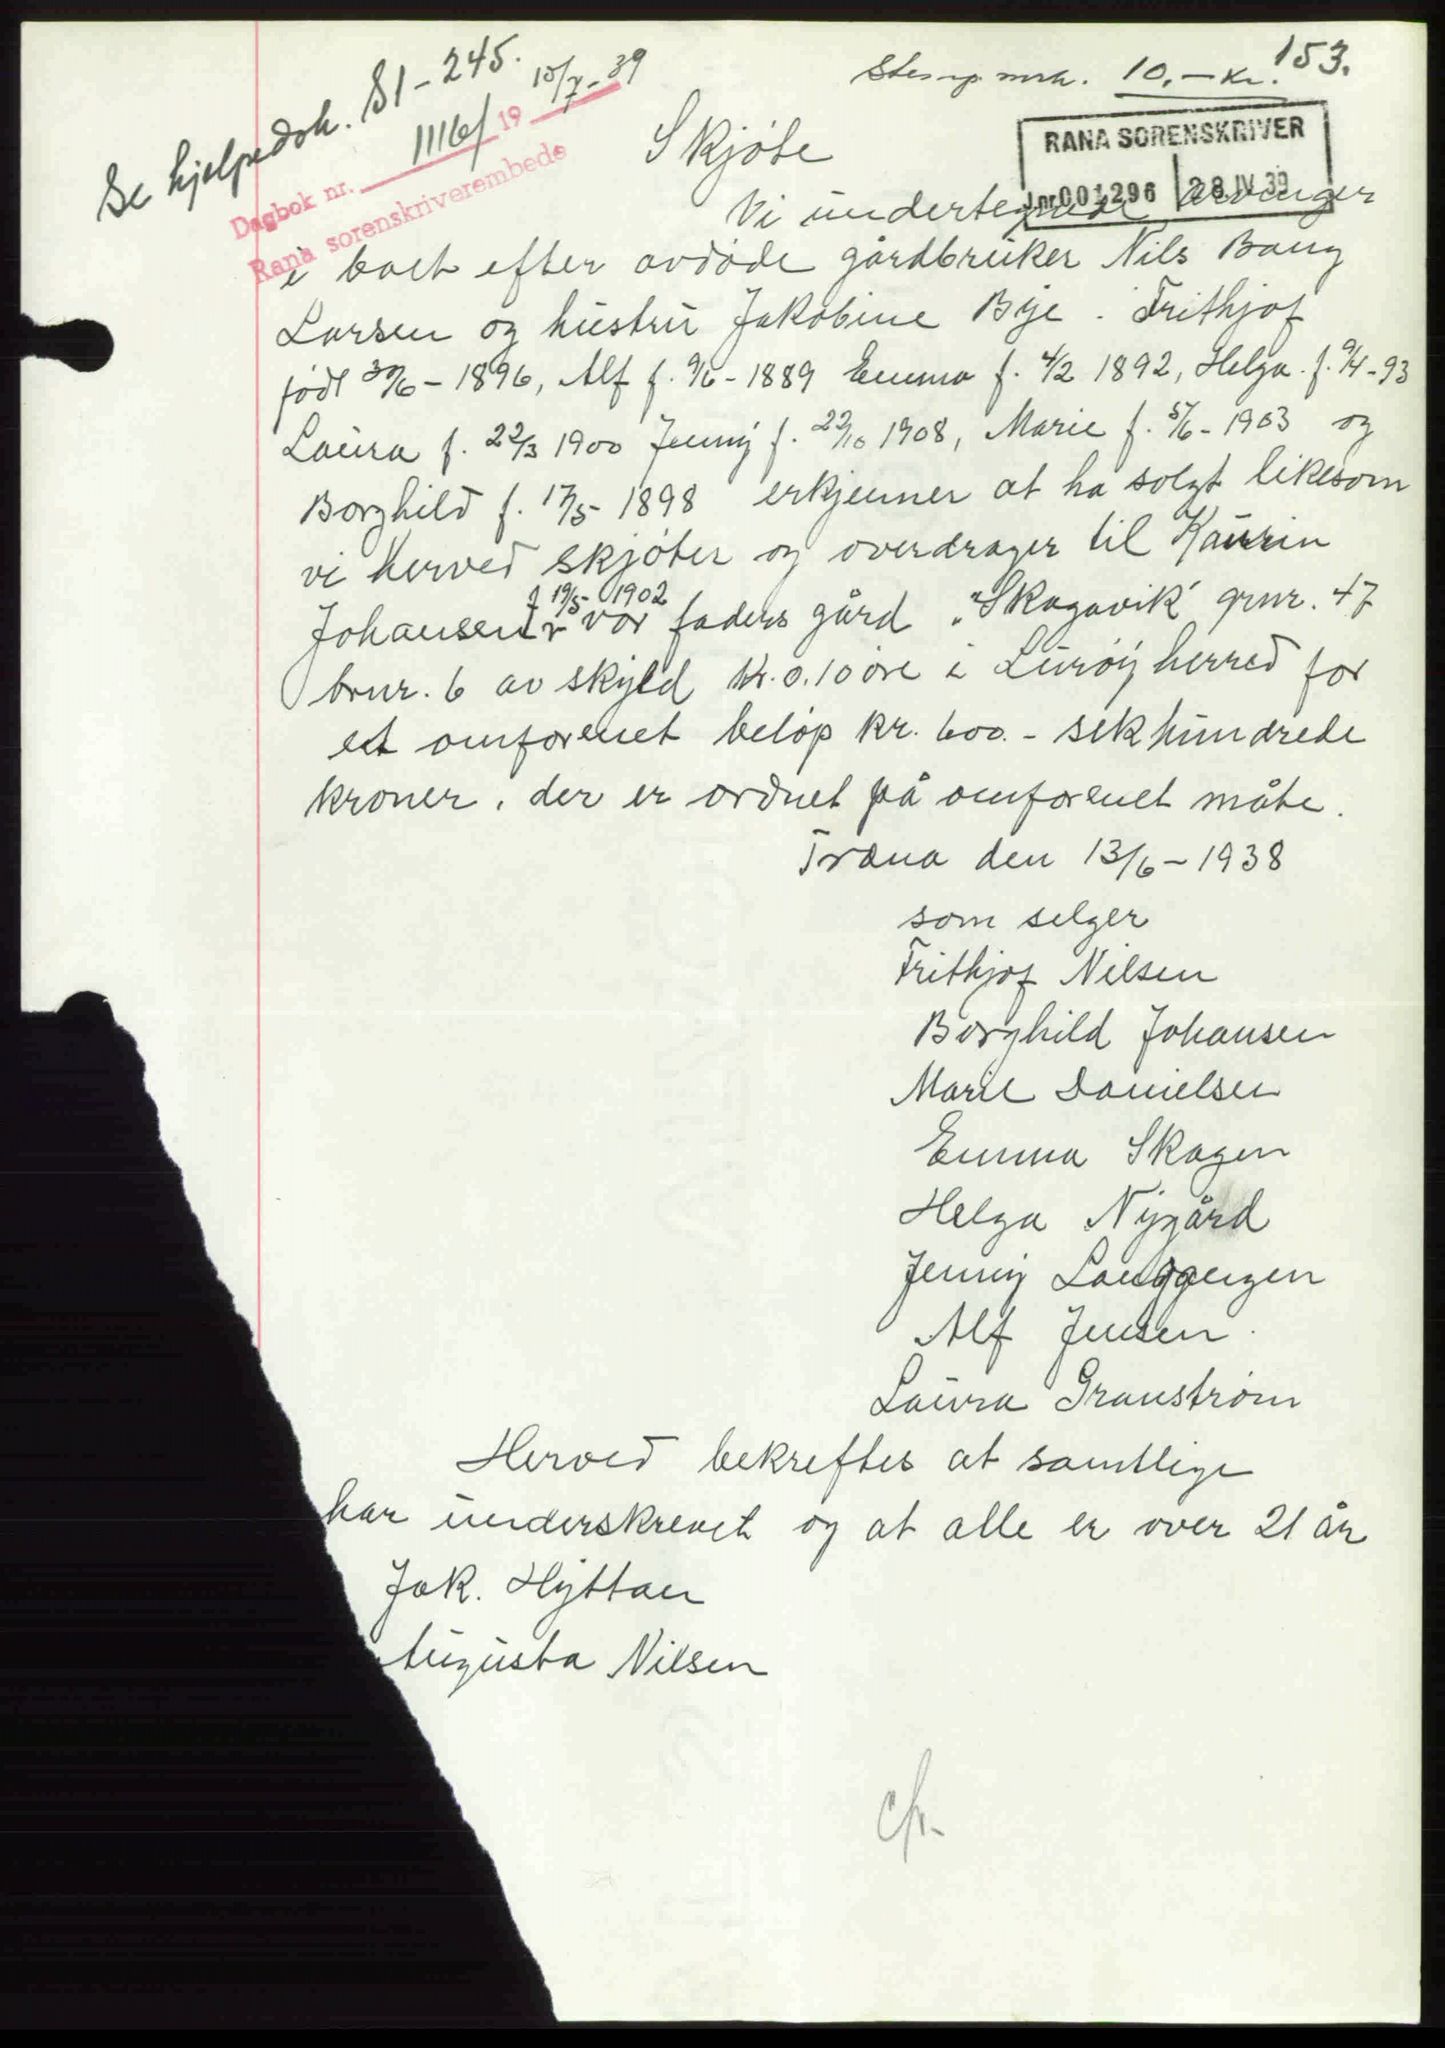 153.
Stemp mrk. 10,- kr.
Se hjelpedok. S1-245.
Dagbok nr. 1116/ 19 15/7-39
Rana sorenskriverembede
RANA SORENSKRIVER
Jnr 001296 28.IV.39
Skjøte
Vi undertegnede arvinger
i boet efter avdøde gårdbruker Nils Bang
Larsen og hustru Jakobine Bye. Frithjof
født 30/6-1896, Alf f. 9/6-1889 Emma f. 4/2 1892, Helga f. 9/4-93
Laura f. 22/3 1900 Jenny f. 22/10 1908, Marie f. 5/6-1903 og
Borghild f. 17/5-1898 erkjenner at ha solgt likesom
vi herved skjøter og overdrager til Kaurin
f 19/5- 1902
Johansen vor faders gård "Skagavik" grnr. 47
brnr. 6 av skyld kr. 0.10 øre i Lurøy herred for
et omforenet beløp kr. 600.- sekshundrede
kroner, der er ordnet på omforenet måte.
Træna den 13/6-1938
som selger
Frithjof Nilsen
Borghild Johansen
Marie Danielsen
Emma Skagen
Helga Nygård
Jenny
Alf Jensen
Laura Granstrøm
Herved bekreftes at samtlige
har underskrevet og at alle er over 21 år
Jak. Hyttan
Augusta Nilsen